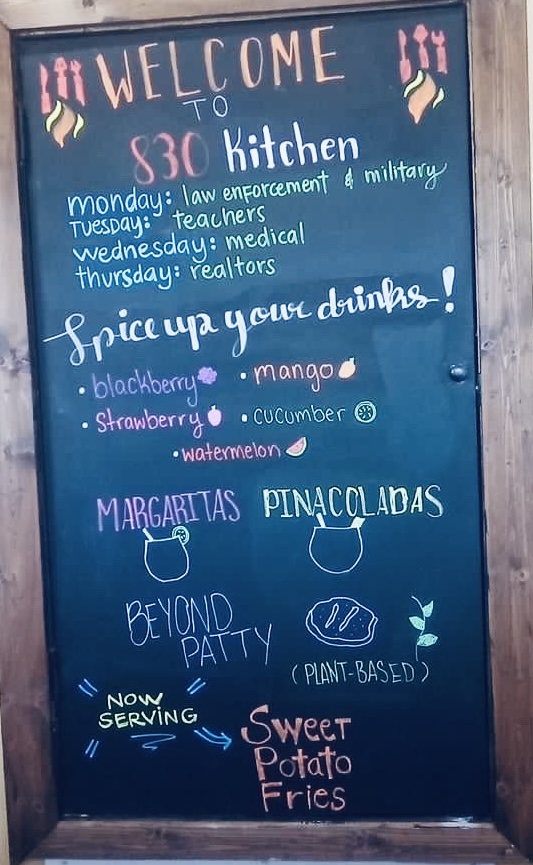 WELCOME
TO
830 Kitchen
monday: law enforcement & military
TUESDAY: teachers
wednesday: medical
thursday: realtors
Spice up your drinks!
• blackberry • mango
• Strawberry • CUCUMBER
• watermelon
MARGARITAS PINACOLADAS
BEYOND
PATTY
(PLANT-BASED)
NOW
SERVING
SWEET
Potato
Fries